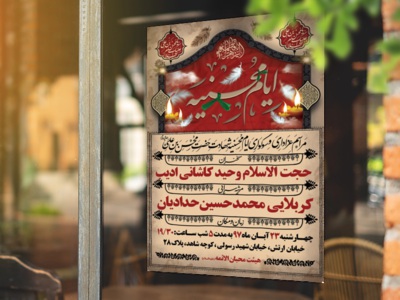 ایام محسنیه
مراسم عزاداری و سوگواری ایام محسنیه شهادت حضرت محسن بن علی
سخنران
حجت الاسلام وحید کاشانی ادیب
مدیحه سرایی
کربلایی محمدحسین حدادیان
زمان و مکان
چهارشنبه ۲۳ آبان ماه ۹۷ به مدت ۵ شب ساعت: ۱۹/۳۰
خیابان ارتش، خیابان شهید رسولی، کوچه شاهد، پلاک ۲۸
هیئت محبان الائمه